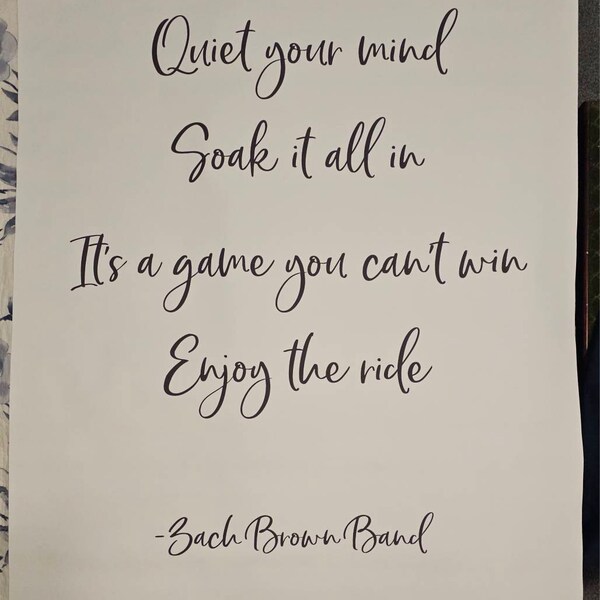 Quiet your mind
Soak it all in
It's a game you can't win
Enjoy the ride
-Zach Brown Band